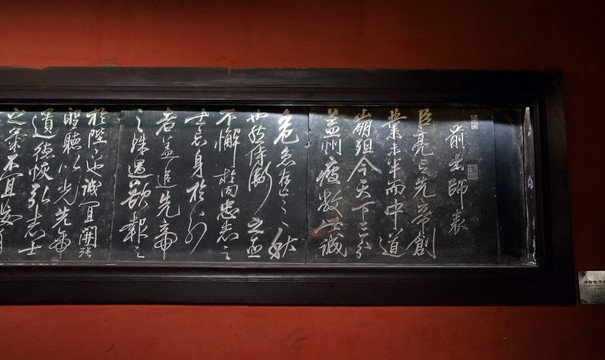 前出師表
臣亮言先帝創
業未半而中道
崩殂今天下三分
益州疲敝此誠
危急存亡之秋
也然侍衛之臣
不懈於內忠志之
士忘身於外
者蓋追先帝
之殊遇欲報之
於陛下也誠宜開張
聖聽以光先帝
遺德恢弘志士
之氣不宜妄